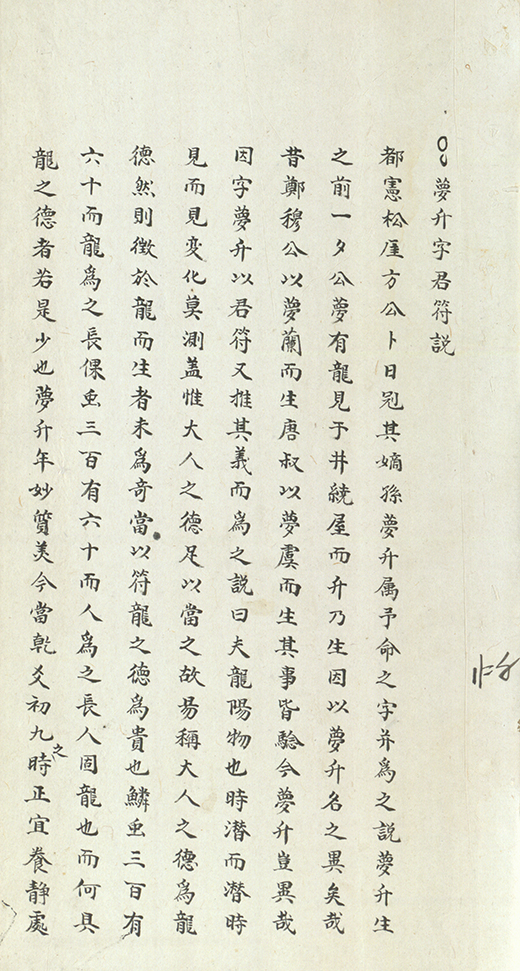 夢升字君符説
都憲松厓方公卜日冠其嫡孫夢升属予命之字并為之説夢升生
之前一夕公夢有龍見于井繞屋而升乃生因以夢升名之異矣哉
昔鄭穆公以夢蘭而生唐叔以夢虞而生其事皆驗今夢升豈異哉
因字夢升以君符又推其義而為之説曰夫龍陽物也時潜而潜時
見而見変化莫測盖惟大人之德足以當之故昜稱大人之德為龍
德然則徴於龍而生者未為竒當以符龍之德為貴也鱗虫三百有
六十而龍為之長倮虫三百有六十而人為之長人固龍也而何具
龍之德者若是少也夢升年妙質美今當乾爻初九之時正宜養静處